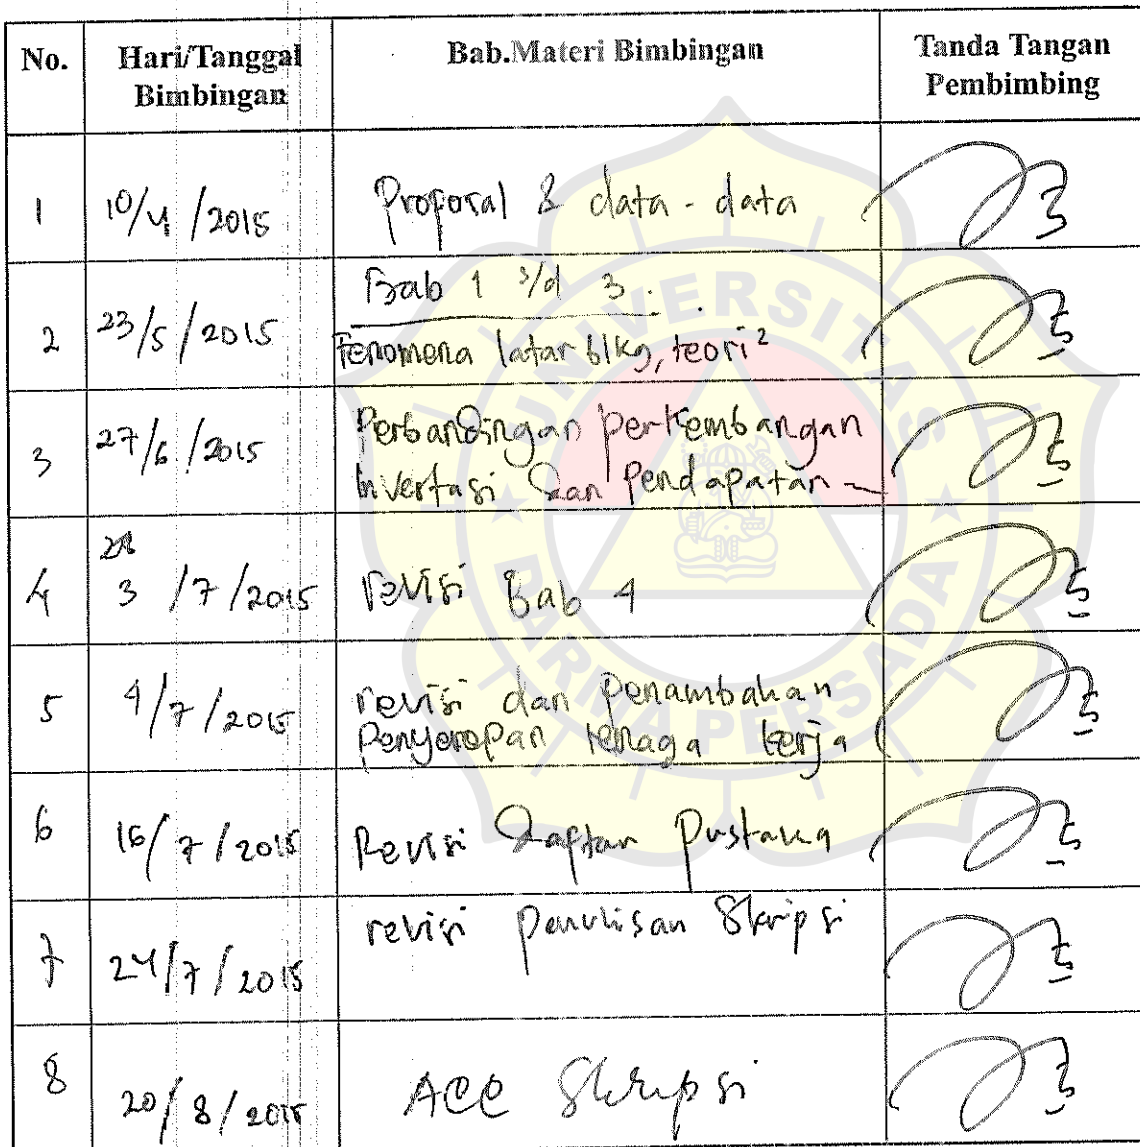 No. Hari/Tanggal Bab.Materi Bimbingan Tanda Tangan
Bimbingan Pembimbing
1 10/4/2015 Proposal & data-data
2 23/5/2015 Bab 1 s/d 3.
Fenomena latar blkg, teori²
3 27/6/2015 Perbandingan perkembangan
Investasi dan Pendapatan
4 3/7/2015 revisi Bab 4
5 4/7/2015 revisi dan Penambahan
Penyerapan tenaga kerja
6 16/7/2015 Revisi Daftar Pustaka
7 24/7/2015 revisi Penulisan Skripsi
8 20/8/2015 ACC Skripsi
UNIVERSITAS
DARMA PERSADA